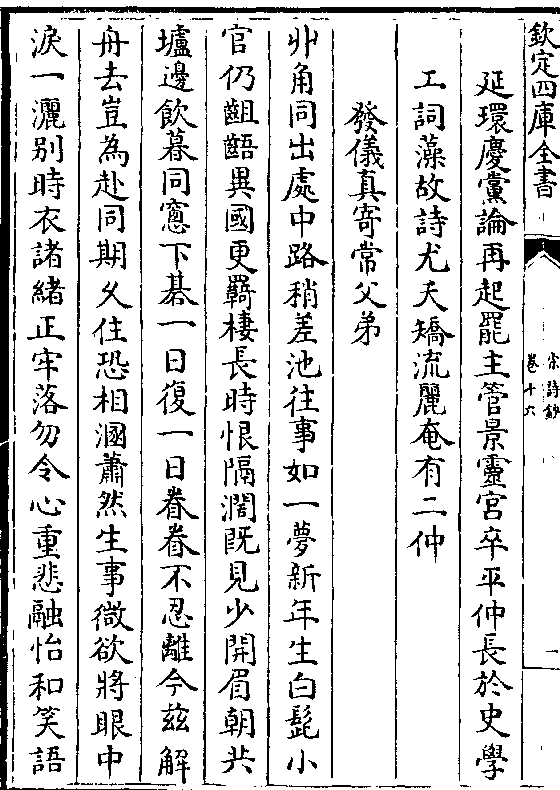 欽定四庫全書
宋詩鈔
卷十六
一
延環慶黨論再起罷主管景靈宮卒平仲長於史學
工詞藻故詩尤夭矯流麗奄有二仲
發儀真寄常父弟
丱角同出處中路稍差池往事如一夢新年生白髭小
官仍齟齬異國更羇棲長時恨隔濶既見少開眉朝共
壚邊飲暮同窻下棊一日復一日眷眷不忍離今兹解
舟去豈為赴同期久住恐相溷蕭然生事微欲將眼中
淚一灑别時衣諸緒正牢落勿令心重悲融怡和笑語